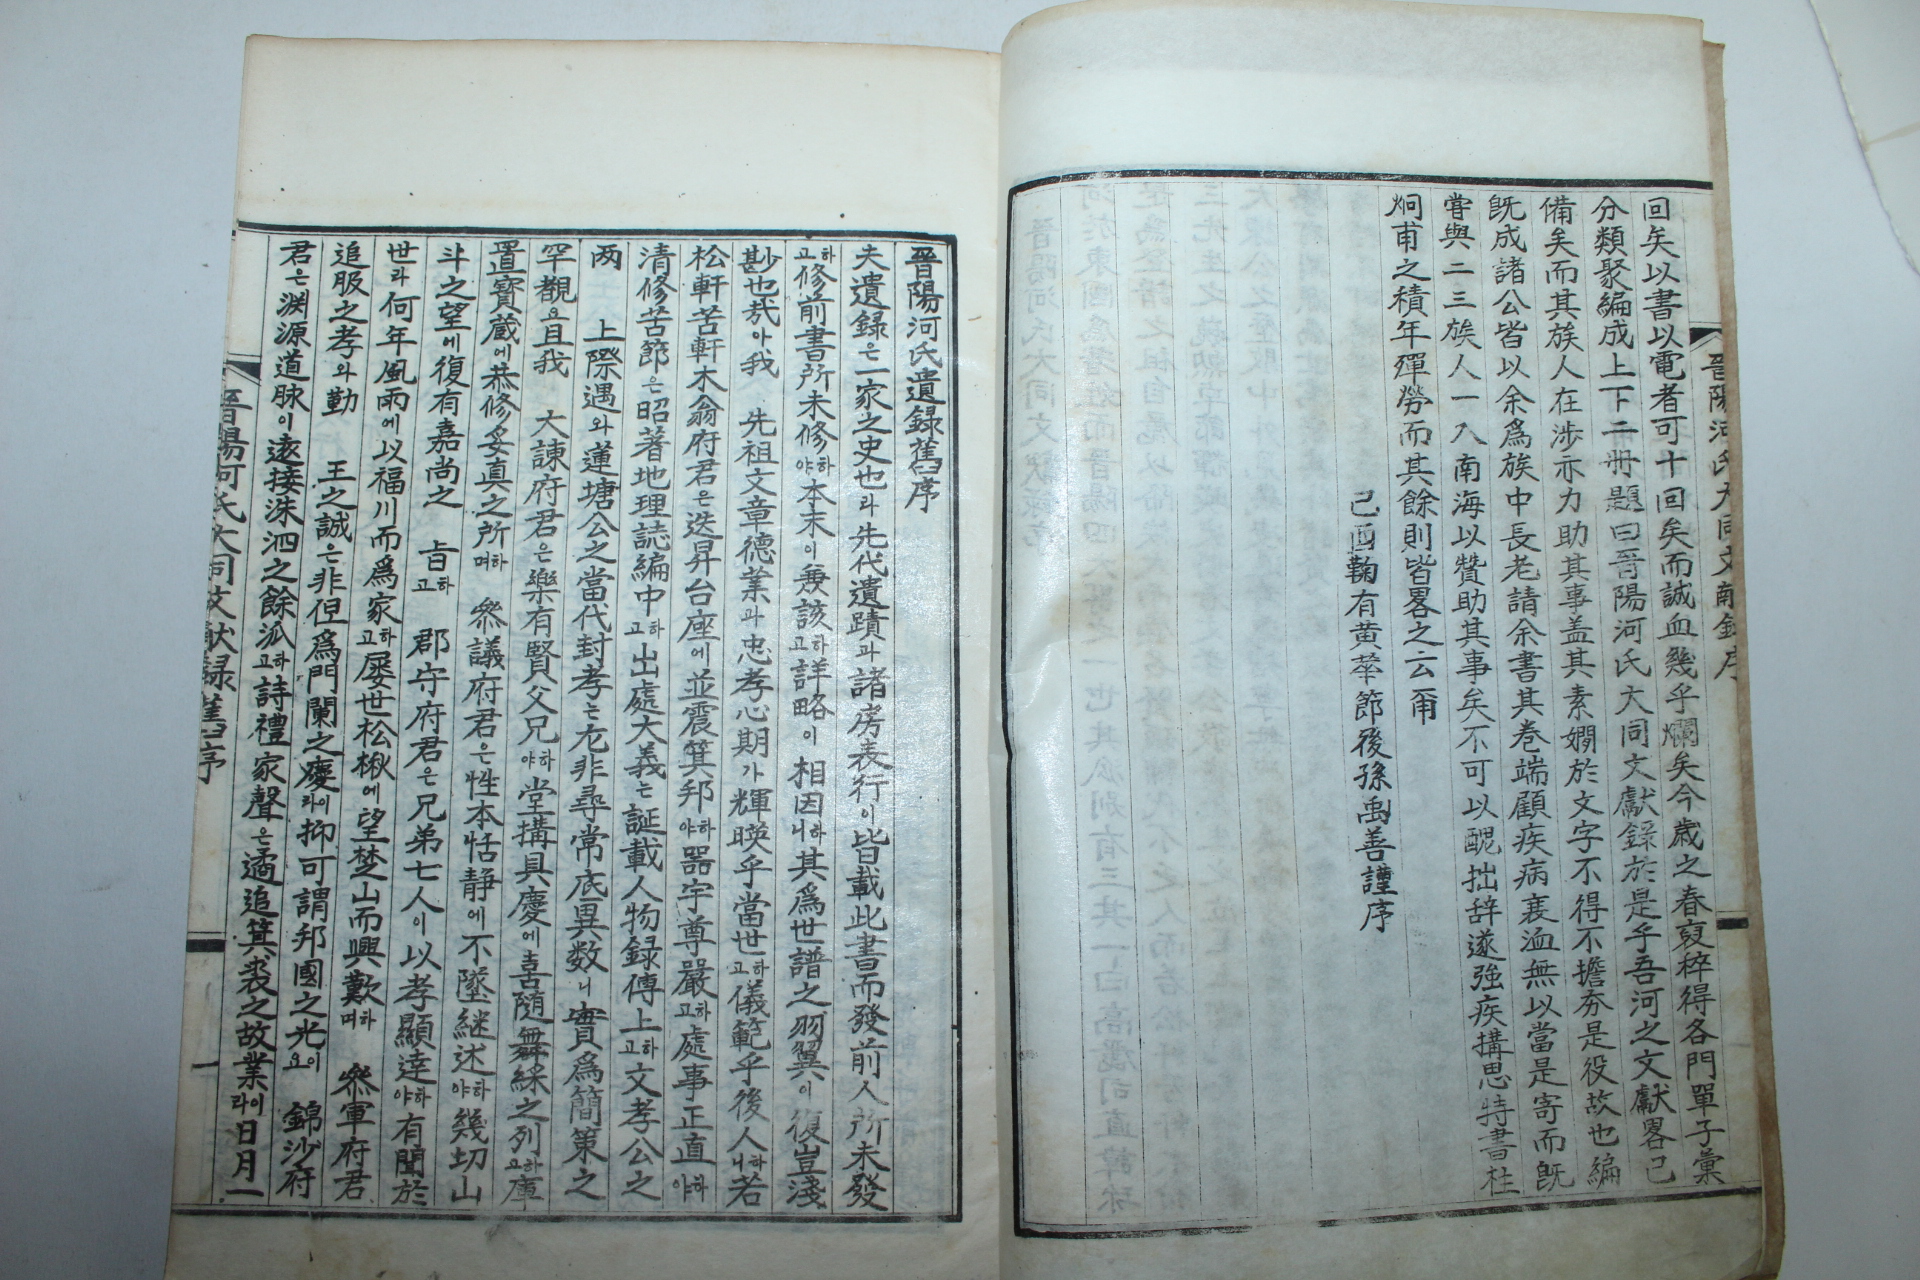 回矣以書以電者可十回矣而誠血幾乎爛矣今歲之春裒稡得各門單子彙
分類聚編成上下二冊題曰晋陽河氏大同文獻錄於是乎吾河之文獻畧已
備矣而其族人在涉亦力助其事盖其素嫺於文字不得不擔夯是役故也編
旣成諸公皆以余爲族中長老請余書其卷端顧疾病衰洫無以當是寄而旣
嘗與二三族人一入南海以贊助其事矣不可以醜拙辞遂強疾搆思特書柱
炯甫之積年殫勞而其餘則皆畧之云甭
己酉鞠有黄華節後孫禹善謹序
晋陽河氏大同文献錄序
晋陽河氏遺録舊序
夫遺録은一家之史也라先代遺蹟과諸房表行이皆載此書而發前人所未發
하고修前書所未修하야本末이兼該하고詳略이相因하니其爲世譜之羽翼이復豈淺
尠也㢤아我 先祖文章德業과忠孝心期가輝暎乎當世하고儀範乎後人하니若
松軒苦軒木翁府君은迭昇台座에並震箕邦하야器宇尊嚴하고處事正直하야
清修苦節은昭著地理誌編中하고出處大義는誕載人物録傳上하고文孝公之
两 上際遇와蓮塘公之當代封孝는尤非尋常底異数니實爲簡策之
罕覩요且我 大諫府君은樂有賢父兄하야堂搆具慶에喜随舞綵之列하고庫
置寳蔵에恭修妥真之所하며 叅議府君은性本恬静에不墜継述하야幾切山
斗之望에復有嘉尚之 旨하고 郡守府君은兄弟七人이以孝顯達하야有聞於
世라何年風雨에以福川而爲家하고屡世松楸에望楚山而興歎하며 叅軍府君
追服之孝와勤 王之誠은非但爲門闌之慶이라抑可謂邦國之光이요 錦沙府
君은淵源道脉이遠接洙泗之餘派하고詩禮家聲은遹追箕裘之故業이라日月一
晋陽河氏大同文献録舊序 一